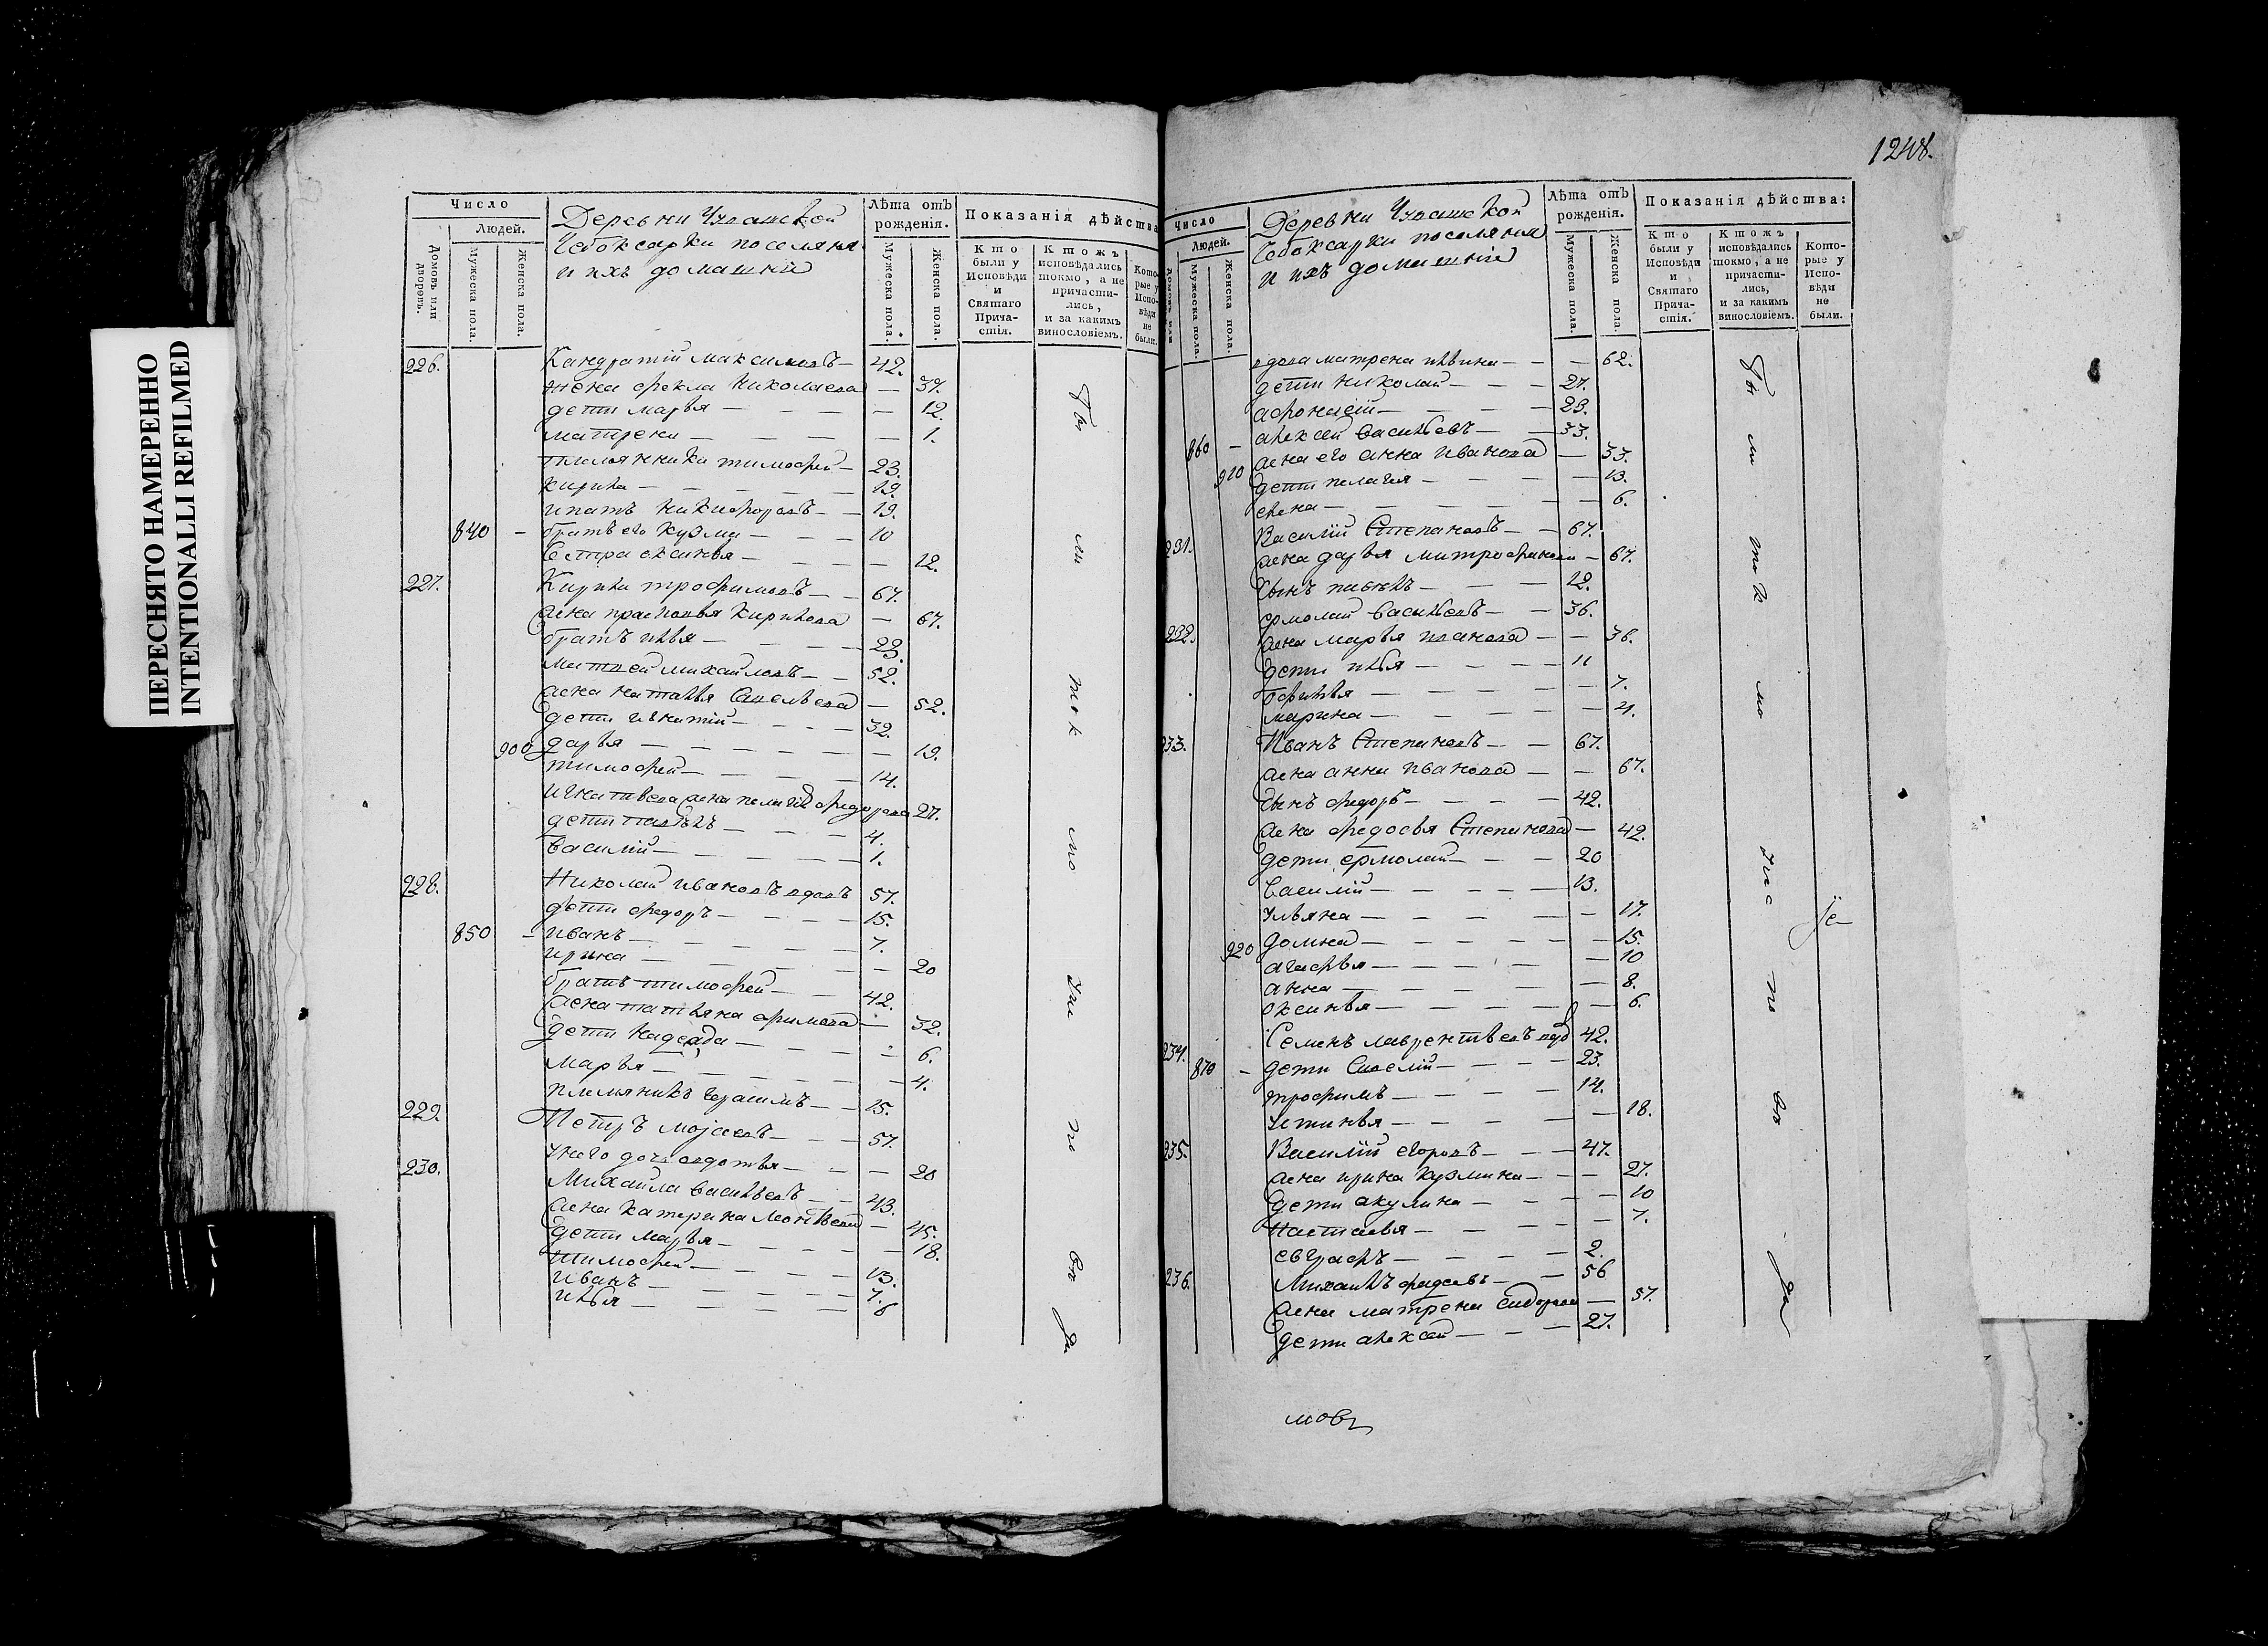 ПЕРЕСНЯТО НАМЕРЕННО
INTENTIONALLI REFILMED
Число
Людей.
Домовъ или дворовъ.
Мужеска пола.
Женска пола.
Деревни Чувашской
Чебоксарки поселяня
и ихъ домашнiи
Лѣта отъ рожденiя.
Мужеска пола.
Женска пола.
Показанiя дѣйства
Кто были у Исповѣди и Святаго Прича-стiя.
Ктожъ исповѣдались токмо, а не причасти-лись, и за какимъ винословiемъ.
Кото-рые у Испо-вѣди не были.
226. Кандратiй Максимовъ — 42.
жена фекла Николаева — 37.
дети марья — 12.
матрена — 1.
племянники тимофей — 23.
кирила — 19.
ипатъ никифоровъ — 19.
840 — братъ его кузма — 10
Сестра оксинья — 12.
227. Кирила трофимовъ — 67.
жена прасковья Кирилова — 67.
братъ илья — 23.
матвей михайловъ — 52.
жена наталья Савельева — 52.
дети игнатiй — 32.
900 дарья — 19.
тимофей — 14.
игнатьева жена пелагея федорова 27.
дети павелъ — 4.
василiй — 1.
228. Николай ивановъ вдовъ 57.
дети федоръ — 15.
850 — иванъ — 7.
ирина — 20
братъ тимофей — 42.
жена татьяна ефимова — 32.
дети надежда — 6.
марья — 4.
племяникъ герасимъ — 15.
229. Петръ моисеевъ — 57.
у него дочь авдотья — 20
230. Михаила васильевъ — 43.
жена катерина — 45.
дети марья — 18.
тимофей — 13.
иванъ — 7.
илья — 6
бы ли ток мо у и по ве ди
1248.
Число
Людей.
Мужеска пола.
Женска пола.
Деревни Чувашской
Чебоксарки поселяня
и ихъ домашнiи
Лѣта отъ рожденiя.
Мужеска пола.
Женска пола.
Показанiя дѣйства:
Кто были у Исповѣди и Святаго Прича-стiя.
Ктожъ исповѣдались токмо, а не причасти-лись, и за какимъ винословiемъ.
Кото-рые у Испо-вѣди не были.
вдова матрена ильина — 62.
дети николай — 27.
афонасiй — 23.
860 — алексей васильевъ — 33.
жена его анна иванова — 33.
910 дети пелагея — 13.
елена — 6.
231. Василiй Степановъ — 67.
жена дарья митрофанова — 67.
сынъ павелъ — 12.
232. ермолай васильевъ — 36.
жена марья иванова — 36.
дети илья — 11
офимья — 7.
марина — 4.
233. Иванъ Степановъ — 67.
жена анна иванова — 67.
сынъ федоръ — 42.
жена федосья Степанова — 42.
дети ермолай — 20
василiй — 13.
ульяна — 17.
домна — 15.
920 агафья — 10
анна — 8.
оксинья — 6.
234. Семенъ лаврентьевъ вдов 42.
870 — дети Савелiй — 23.
трофимъ — 14.
устинья — 18.
235. Василiй егоровъ — 47.
жена ирина кузмина — 27.
дети акулина — 10
настасья — 7.
евграфъ — 2.
236. Михаилъ фадеевъ — 56
жена матрена сидорова — 57.
дети алексей — 27.
бы ли ток мо у ис по ве ди